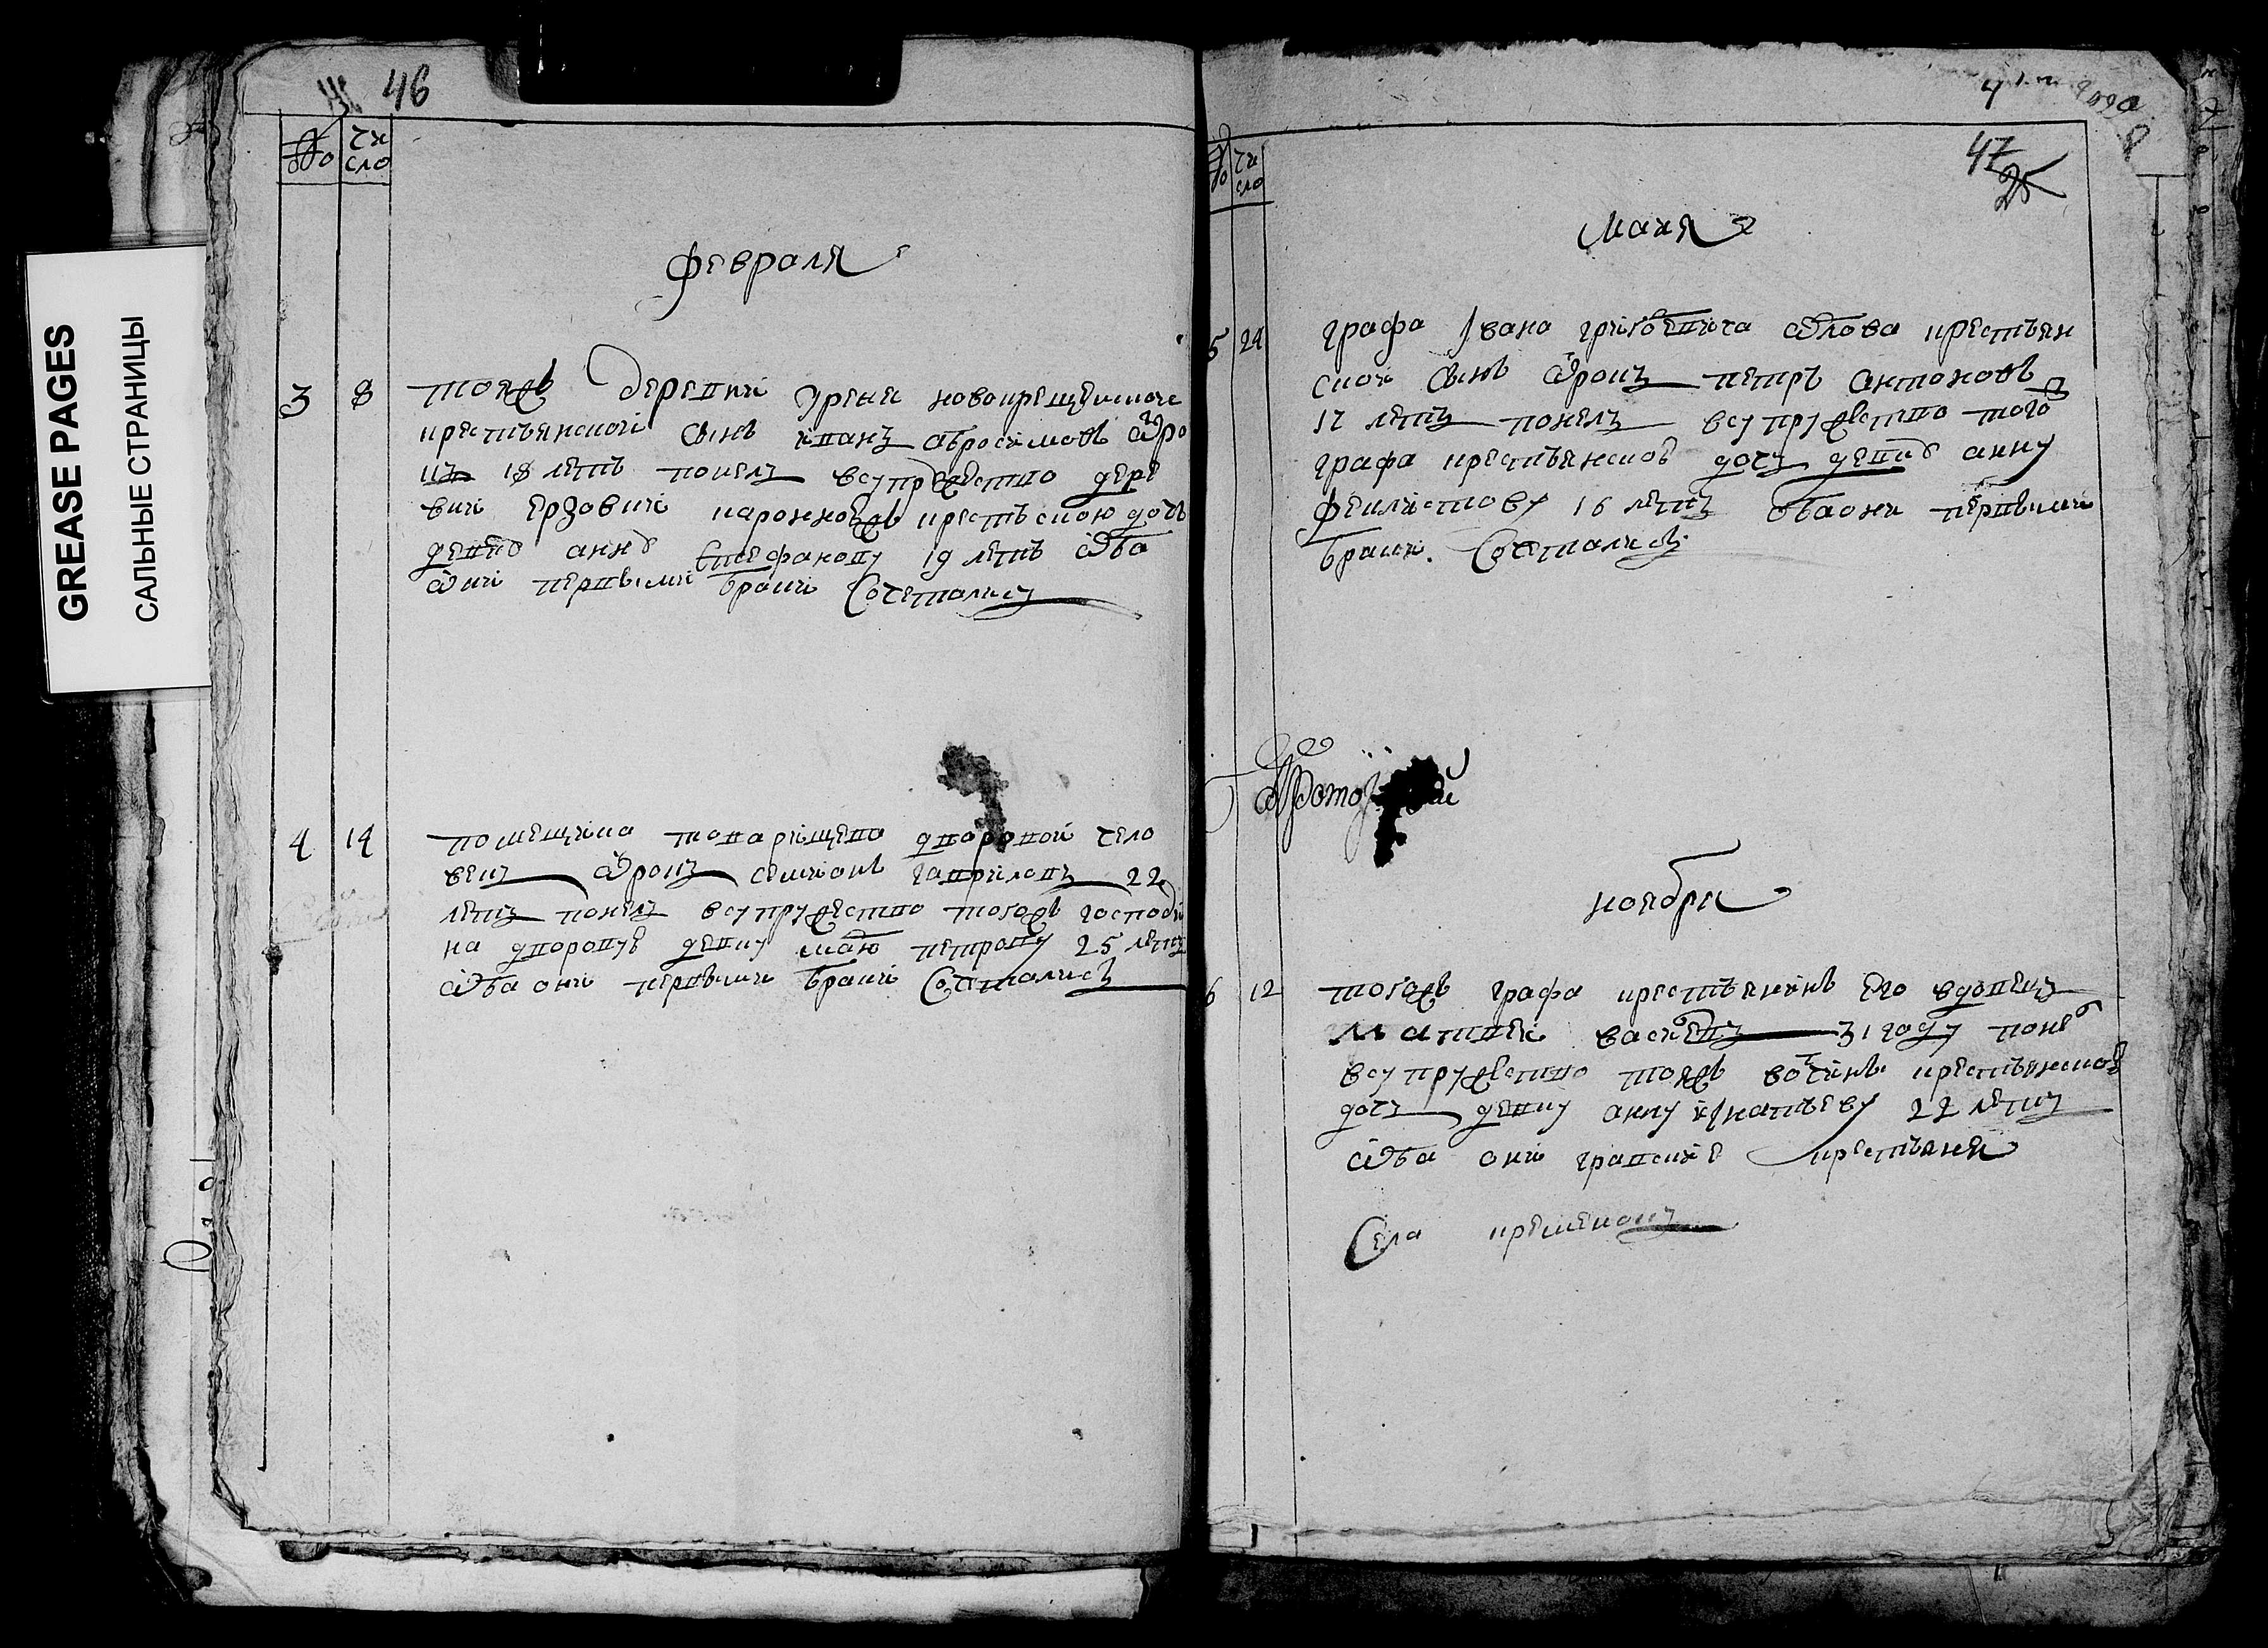 GREASE PAGES
САЛЬНЫЕ СТРАНИЦЫ
46
№
чи
сло
февраля
3 8 тояжъ деревни Урени новокрещенскаго
крестьянской сынъ иванъ абросимовъ отро
къ 18 летъ понелъ всупружество дере
вни крестьскою дочь
девку анну Стефанову 19 летъ оба
они первымъ бракомъ Сочеталис
4 14 помещика дворовой чело
векъ отрокъ семионъ гавриловъ 22
летъ понелъ всупружество тогожъ господи
на дворовую девку петрову 25 летъ
оба они первымъ бракомъ Сочеталис
47
25
№
чи
сло
маия
5 24 графа Iвана григоревича орлова крестьян
ской сынъ отрокъ петръ антоновъ
17 летъ понелъ всупружество того
графа крестьянскую дочь девку анну
феклистову 16 летъ оба они первымъ
бракомъ. Сочеталис
ноября
6 12 тогожъ графа крестьянинъ Его вдовецъ
матвеи васильевъ 31 году понелъ
всупружество тояжъ вотчины крестьянскую
дочь девку анну игнатьеву 22 летъ
оба они графские крестьяня
Села